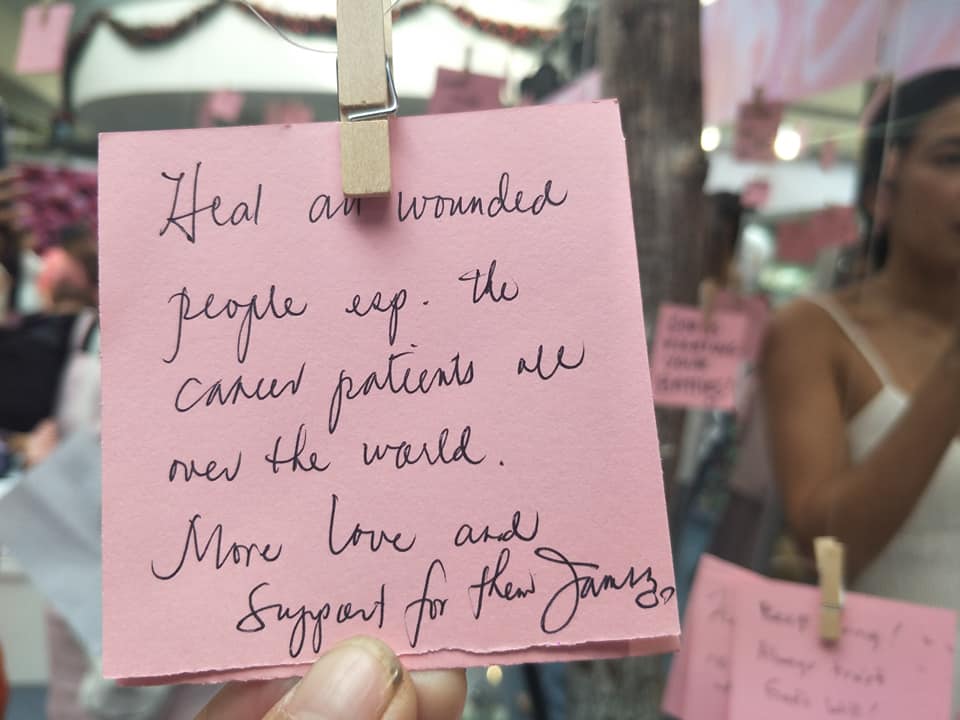 Heal all wounded
people esp. the
cancer patients all
over the world.
More love and
Support for them
Always trust
God's Will!